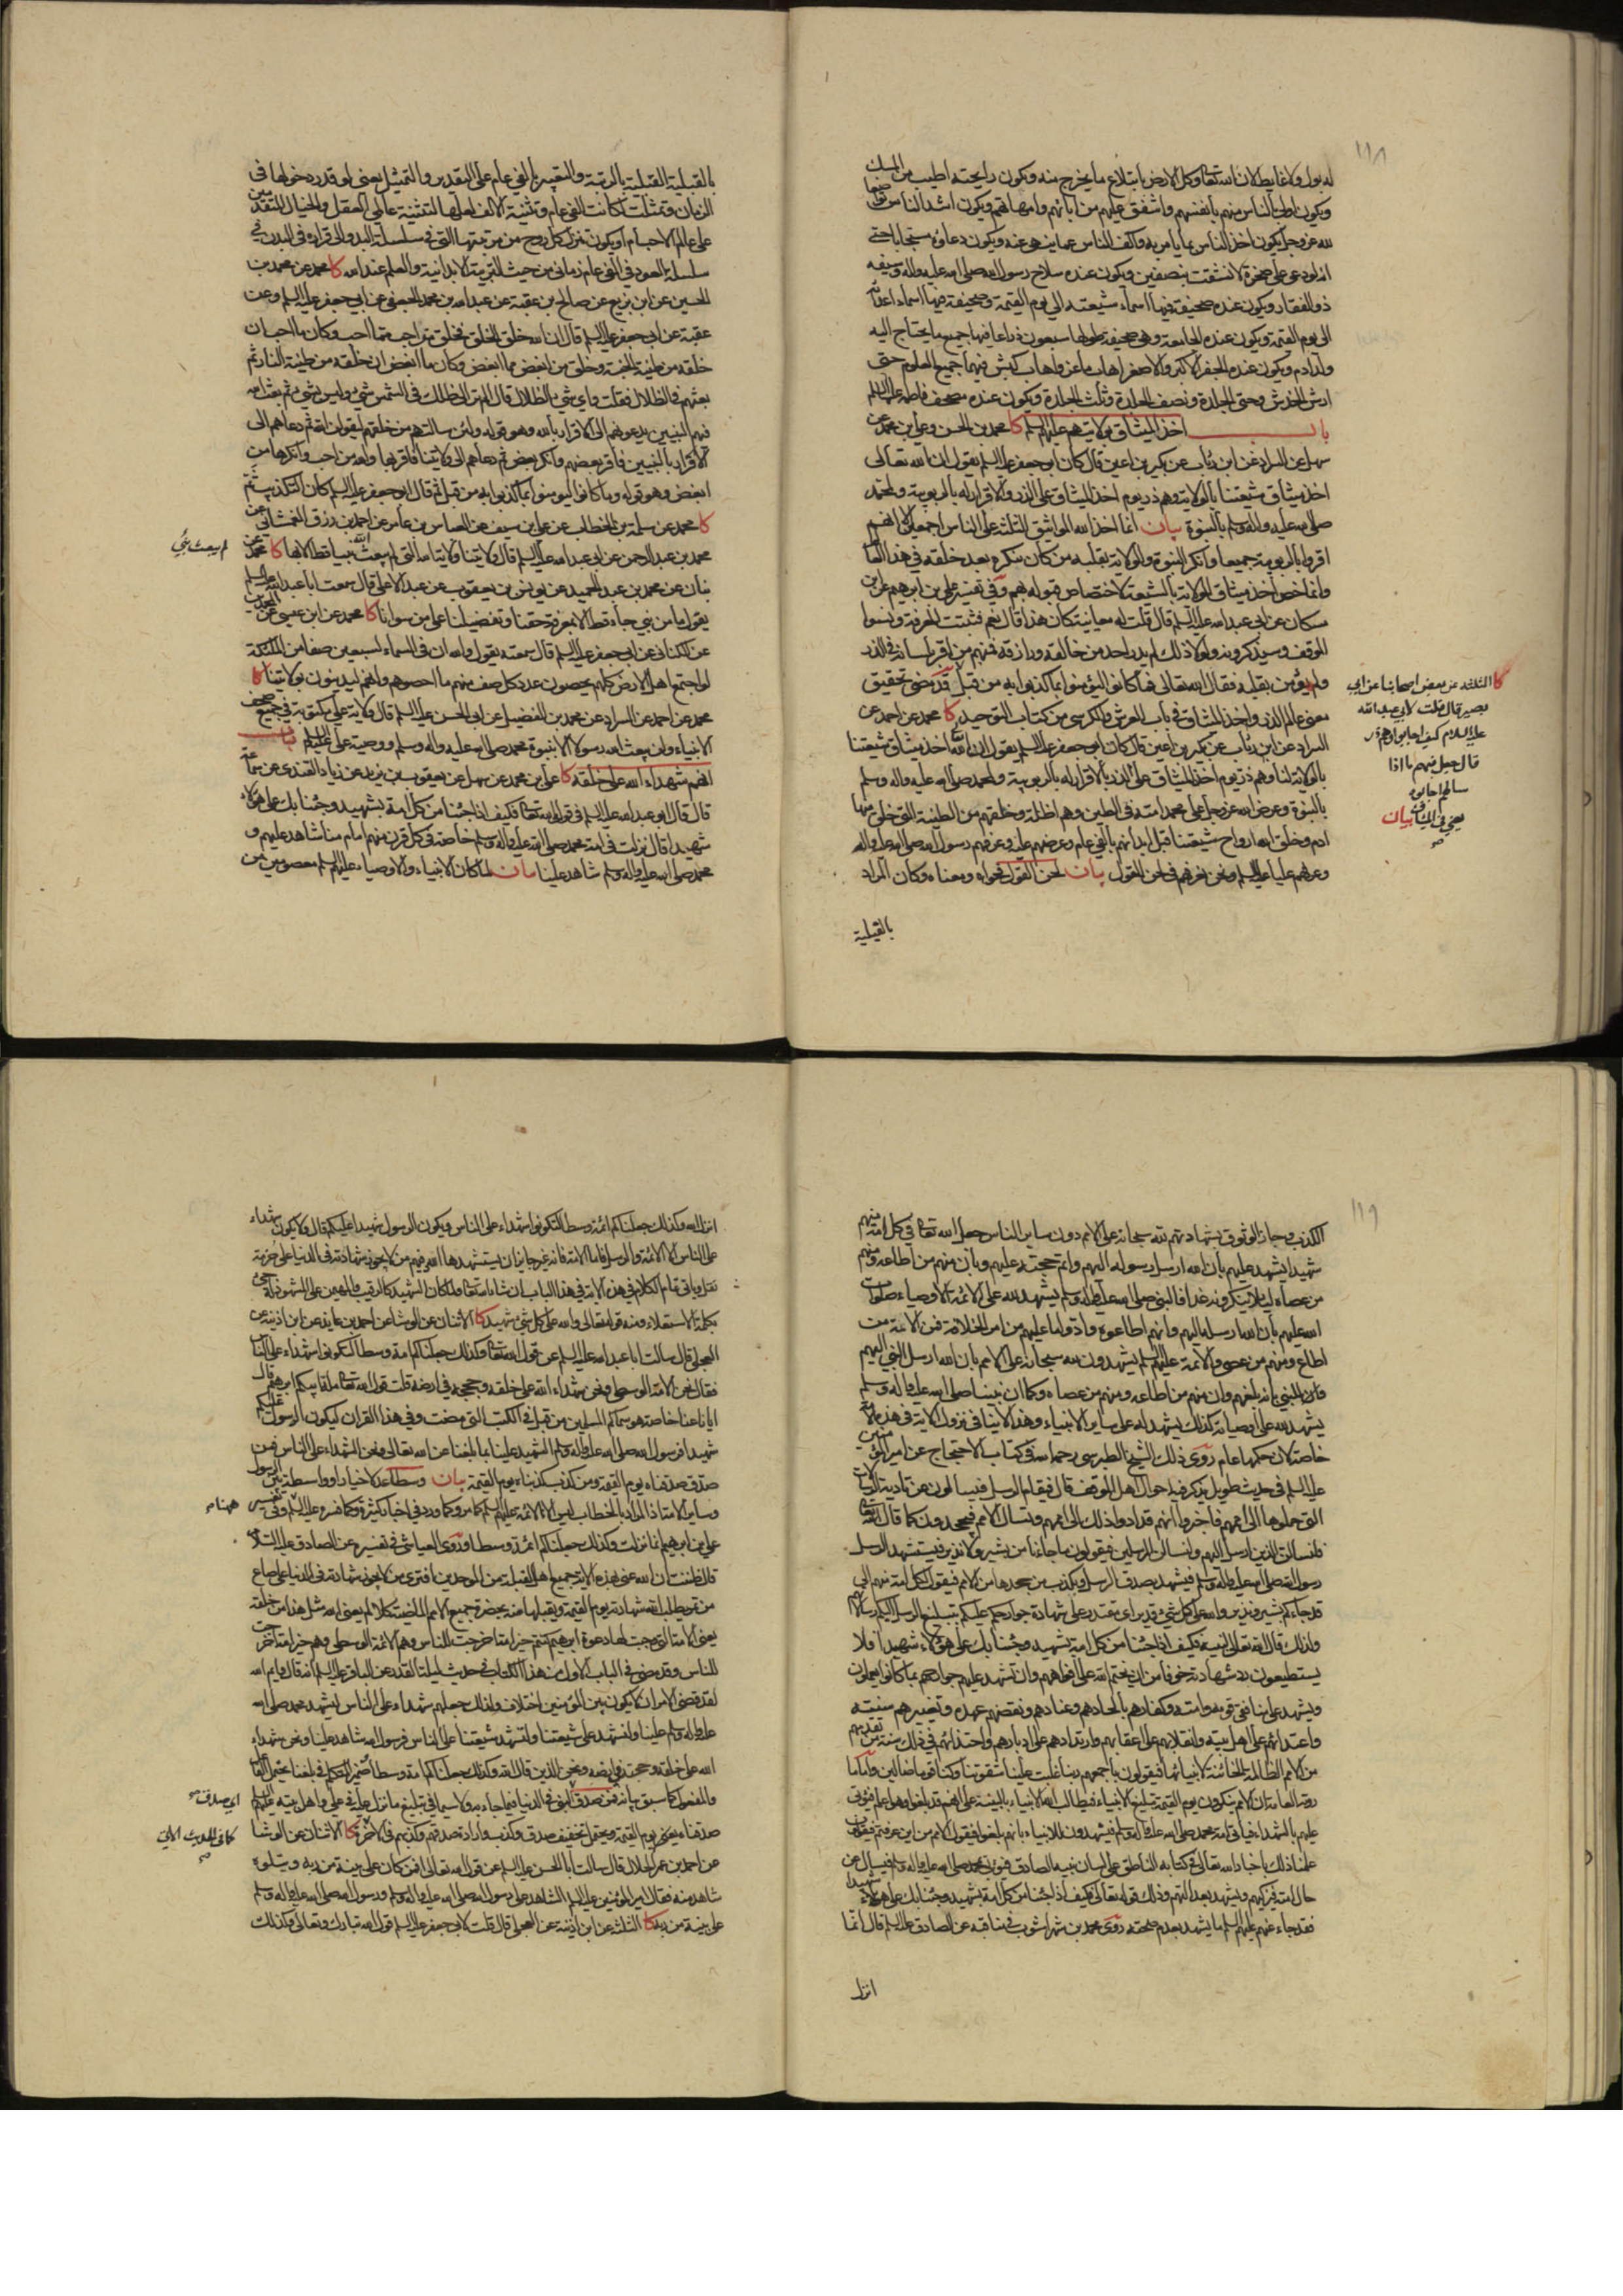 ١١٨
له بول ولا غايط لان الله تعالى وكل الارض بابتلاع ما يخرج منه ويكون رايحته اطيب من المسك
ويكون اولى الناس منهم بانفسهم واشفق عليهم من ابائهم وامهاتهم ويكون اشد الناس تواضعا
لله عز وجل ويكون اخذ الناس بما يأمر به واكف الناس عما ينهى عنه ويكون دعاؤه مستجابا حتى
انه لو دعى على صخرة لانشقت بنصفين ويكون عنده سلاح رسول الله صلى الله عليه واله وسيفه
ذو الفقار ويكون عنده صحيفة فيها اسماء شيعته الى يوم القيمة وصحيفة فيها اسماء اعدائه
الى يوم القيمة ويكون عنده الجامعة وهى صحيفة طولها سبعون ذراعا فيها جميع ما يحتاج اليه
ولد ادم ويكون عنده الجفر الاكبر والاصغر اهاب ماعز واهاب كبش فيهما جميع العلوم حتى
ارش الخدش وحتى الجلدة ونصف الجلدة وثلث الجلدة ويكون عنده مصحف فاطمة عليها السلم
باب اخذ الميثاق بولايتهم عليهم السلم كا محمد بن الحسن وعلى بن محمد عن
سهل عن السراد عن ابن رئاب عن بكير بن اعين قال كان ابو جعفر عليه السلم يقول ان الله تعالى
اخذ ميثاق شيعتنا بالولاية وهم ذر يوم اخذ الميثاق على الذر والاقرار له بالربوبية ولمحمد
صلى الله عليه واله وسلم بالنبوة بيان انما اخذ الله المواثيق الثلثة على الناس اجمعين الا انهم
اقروا بالربوبية جميعا وانكر النبوة والولاية بقلبه من كان ينكره بعد خلقه في هذا العالم
وانما خص اخذ ميثاق الولاية بالشيعة لاختصاص قبوله بهم وفي تفسير على بن ابرهيم عن ابن
مسكان عن ابى عبد الله عليه السلم قال قلت له معاينة كان هذا قال نعم فثبتت المعرفة ونسوا
الموقف وسيذكرونه ولولا ذلك لم يدر احد من خالقه ورازقه فمنهم من اقر بلسانه في الذر
ولم يؤمن بقلبه فقال الله تعالى فما كانوا ليؤمنوا بما كذبوا به من قبل وقد مضى تحقيق
معنى عالم الذر واخذ الميثاق في باب العرش والكرسى من كتاب التوحيد كا محمد عن احمد عن
السراد عن ابن رئاب عن بكير بن اعين قال كان ابو جعفر عليه السلم يقول ان الله اخذ ميثاق شيعتنا
بالولاية لنا وهم ذر يوم اخذ الميثاق على الذر بالاقرار له بالربوبية ولمحمد صلى الله عليه واله وسلم
بالنبوة وعرض الله عز وجل على محمد امته في الطين وهم اظلة وخلقهم من الطينة التى خلق منها
ادم وخلق الله ارواح شيعتنا قبل ابدانهم بالفي عام وعرضهم عليه وعرفهم رسول الله صلى الله عليه واله
وعرفهم عليا عليه السلم ونحن نعرفهم فى لحن القول بيان لحن القول فحواه ومعناه وكان المراد
بالقبلية
كا الثلثة عن بعض اصحابنا عن ابي
بصير قال قلت لابي عبد الله
عليه السلام كيف اجابوا وهم ذر
قال جعل فيهم ما اذا
سالهم اجابوه
يعني في الميثاق بيان
بالقبلية القبلية بالرتبة والتعبير بالفي عام على التقدير والتمثيل يعنى لو قدر دخولها فى
الزمان وتمثلت لكانت الفي عام وتثنية الالف لعلها لتثنية عالمي العقل والخيال المتقدمين
على عالم الاجسام او يكون تنزل كل روح من مرتبتها التى في سلسلة البدو الى قراره في البدن في
سلسلة العود في الفي عام زماني من حيث التربية الابدانية والعلم عند الله كا محمد عن محمد بن
الحسين عن ابن بزيع عن صالح بن عقبة عن عبد الله بن محمد الجعفى عن ابي جعفر عليه السلم وعن
عقبة عن ابي جعفر عليه السلم قال ان الله خلق الخلق فخلق من احب مما احب وكان ما احب ان
خلقه من طينة الجنة وخلق من ابغض مما ابغض وكان ما ابغض ان خلقه من طينة النار ثم
بعثهم في الظلال فقلت واي شيء الظلال قال الم تر الى ظلك في الشمس شيء وليس بشيء ثم بعث الله
فيهم النبيين يدعونهم الى الاقرار بالله وهو قوله ولئن سالتهم من خلقهم ليقولن الله ثم دعاهم الى
الاقرار بالنبيين فاقر بعضهم وانكر بعض ثم دعاهم الى ولايتنا فاقر بها والله من احب وانكرها من
ابغض وهو قوله وما كانوا ليؤمنوا بما كذبوا به من قبل ثم قال ابو جعفر عليه السلم كان التكذيب ثم
كا محمد عن سلمة بن الخطاب عن على بن سيف عن العباس بن عامر عن احمد بن رزق الغمشانى عن
محمد بن عبد الرحمن عن ابى عبد الله عليه السلم قال ولايتنا ولاية الله التي لم يبعث الله نبيا قط الا بها كا محمد
بنان عن محمد بن عبد الحميد عن يونس بن يعقوب عن عبد الاعلى قال سمعت ابا عبد الله عليه السلم
يقول ما من نبي جاء قط الا بمعرفة حقنا وتفضيلنا على من سوانا كا محمد عن ابن عيسى عن
عن الكنانى عن ابى جعفر عليه السلم قال سمعته يقول والله ان فى السماء لسبعين صفا من الملئكة
لو اجتمع اهل الارض كلهم يحصون عدد كل صف منهم ما احصوهم وانهم ليدينون بولايتنا كا
محمد عن احمد عن السراد عن محمد بن الفضيل عن ابي الحسن عليه السلم قال ولاية على مكتوبة في جميع صحف
الانبياء ولن يبعث الله رسولا الا بنبوة محمد صلى الله عليه واله وسلم ووصية على عليه السلم باب
انهم شهداء الله على خلقه كا على بن محمد عن سهل عن يعقوب بن يزيد عن زياد القندى عن سماعة
قال قال ابو عبد الله عليه السلم في قول الله تعالى فكيف اذا جئنا من كل امة بشهيد وجئنا بك على هؤلاء
شهيدا قال نزلت في امة محمد صلى الله عليه واله وسلم خاصة في كل قرن منهم امام منا شاهد عليهم و
محمد صلى الله عليه واله وسلم شاهد علينا بيان لما كان الانبياء والاوصياء عليهم السلم معصومين من
لم يبعث نبي
١١٩
الكذب وجاز الوثوق بشهادتهم لله سبحانه على الامم دون ساير الناس جعل الله تعالى في كل امة منهم
شهيدا يشهد عليهم بان الله ارسل رسوله اليهم واتم حجته عليهم وبان منهم من اطاعه ومنهم
من عصاه لئلا ينكروه غدا فالنبى صلى الله عليه واله وسلم يشهد لله على الائمة الاوصياء صلوات
الله عليهم بان الله ارسله اليهم وانهم اطاعوه وادوا ما عليهم من امر الخلافة فمن الامة من
اطاع ومنهم من عصى والائمة عليهم السلم يشهدون لله سبحانه على الامم بان الله ارسل النبى اليهم
وان النبي بانه بلغهم وان منهم من اطاعه ومنهم من عصاه وكما ان نبينا صلى الله عليه واله وسلم
يشهد لله على اوصيائه كذلك يشهد له على ساير الانبياء وهذا لا ينافى نزول الاية في هذه الامة
خاصة لان حكمها عام روى ذلك الشيخ الطبرسى رحمه الله في كتاب الاحتجاج عن امير المؤمنين
عليه السلم فى حديث طويل يذكر فيه احوال اهل الموقف قال فيقام الرسل فيسالون عن تادية الرسالات
التى حملوها الى اممهم فاخبروا انهم قد ادوا ذلك الى اممهم وتسال الامم فيجحدون كما قال الله تعالى
فلنسالن الذين ارسل اليهم ولنسالن المرسلين فيقولون ما جاءنا من بشير ولا نذير فيستشهد الرسل
رسول الله صلى الله عليه واله وسلم فيشهد بصدق الرسل وبكذب من جحدها من الامم فيقول لكل امة منهم بلى
قد جاءكم بشير ونذير والله على كل شيء قدير اى مقتدر على شهادة جوارحكم عليكم بتبليغ الرسل اليكم رسالاتهم
ولذلك قال الله تعالى لنبيه فكيف اذا جئنا من كل امة بشهيد وجئنا بك على هؤلاء شهيدا فلا
يستطيعون رد شهادته خوفا من ان يختم الله على افواههم وان تشهد عليهم جوارحهم بما كانوا يعملون
ويشهد على منافقى قومه وامته وكفارهم بالحادهم وعنادهم ونقضهم عهده وتغييرهم سنته
واعتدائهم على اهل بيته وانقلابهم على اعقابهم وارتدادهم على ادبارهم واحتذائهم في ذلك سنة من تقدمهم
من الامم الظالمة الخائنة لانبيائها فيقولون باجمعهم ربنا غلبت علينا شقوتنا وكنا قوما ضالين واما ما
روته العامة ان الامم ينكرون يوم القيمة تبليغ الانبياء فيطالب الله الانبياء بالبينة على انهم قد بلغوا وهو اعلم فيؤتى
عليهم بالشهداء فياتى امة محمد صلى الله عليه واله وسلم فيشهدون للانبياء بانهم بلغوا فيقول الامم من اين عرفتم فيقولون
علمنا ذلك باخبار الله تعالى في كتابه الناطق على لسان نبيه الصادق فيؤتى بمحمد صلى الله عليه واله وسلم فيسال عن
حال امته فيزكيهم ويشهد بعدالتهم وذلك قوله تعالى فكيف اذا جئنا من كل امة بشهيد وجئنا بك على هؤلاء شهيدا
فقد جاء عنهم عليهم السلم ما يشهد بعدم صحته روى محمد بن شهراشوب في مناقبه عن الصادق عليه السلم قال انما
انزل
انزل الله وكذلك جعلناكم ائمة وسطا لتكونوا شهداء على الناس ويكون الرسول شهيدا عليكم قال ولا يكون شهداء
على الناس الا الائمة والرسل فاما الامة فانه غير جايز ان يستشهدها الله وفيهم من لا يجوز شهادته فى الدنيا على حزمة
بقل وياتى تمام الكلام في هذه الاية في هذا الباب ان شاء الله تعالى ولما كان الشهيد كالرقيب والمهيمن على المشهود له جيء
بكلمة الاستعلاء ومنه قوله تعالى والله على كل شيء شهيد كا الاثنان عن الوشا عن احمد بن عايذ عن ابن اذينة عن
العجلى قال سالت ابا عبد الله عليه السلم عن قول الله تعالى وكذلك جعلناكم امة وسطا لتكونوا شهداء على الناس
فقال نحن الامة الوسطى ونحن شهداء الله على خلقه وحججه في ارضه قلت قول الله تعالى ملة ابيكم ابرهيم قال
ايانا عنا خاصة هو سماكم المسلمين من قبل في الكتب التى مضت وفي هذا القران ليكون الرسول عليكم
شهيدا فرسول الله صلى الله عليه واله وسلم الشهيد علينا بما بلغنا عن الله تعالى ونحن الشهداء على الناس فمن
صدق صدقناه يوم القيمة ومن كذب كذبناه يوم القيمة بيان وسطا عدلا خيارا وواسطة بين الرسول
وساير الامة اذ المراد بالخطاب ليس الا الائمة عليهم السلم كما مر وكما ورد في اخبار كثيرة وكما فسره عليه السلم وفي تفسير
على بن ابرهيم انما نزلت وكذلك جعلناكم ائمة وسطا وروى العياشى في تفسيره عن الصادق عليه السلام
قال ظننت ان الله عنى بهذه الاية جميع اهل القبلة من الموحدين افترى من لا يجوز شهادته فى الدنيا على صاع
من تمر يطلب الله شهادته يوم القيمة ويقبلها منه بحضرة جميع الامم الماضية كلا لم يعنى الله مثل هذا من خلقه
يعنى الامة التى وجبت لها دعوة ابرهيم كنتم خير امة اخرجت للناس وهم الائمة الوسطى وهم خير امة اخرجت
للناس وقد مضى في الباب الاول من هذا الكتاب فى حديث ليلة القدر عن الباقر عليه السلم انه قال وايم الله
لقد قضى الامر ان لا يكون بين المؤمنين اختلاف ولذلك جعلهم شهداء على الناس ليشهد محمد صلى الله
عليه واله وسلم علينا ولنشهد على شيعتنا ولتشهد شيعتنا على الناس فرسول الله شاهد علينا ونحن شهداء
الله على خلقه وحجته في ارضه ونحن الذين قال الله وكذلك جعلناكم امة وسطا ضمير المتكلم في بلغنا يحتمل الفاعل
والمفعول كما سبق بيانه فمن صدق النبى في الدنيا فيما جاء به ولا سيما في تبليغ ما نزل عليه في على واهل بيته عليهم السلم
صدقناه يعنى يوم القيمة ويحتمل تخفيف صدق وكذب وارادة صدقهم وكذبهم في الاخرة كا الاثنان عن الوشا
عن احمد بن عمر الحلال قال سالت ابا الحسن عليه السلم عن قول الله تعالى افمن كان على بينة من ربه ويتلوه
شاهد منه فقال امير المؤمنين عليه السلم الشاهد على رسول الله صلى الله عليه واله وسلم ورسول الله صلى الله عليه واله وسلم
على بينة من ربه كا الثلثة عن ابن اذينة عن العجلى قال قلت لابي جعفر عليه السلم قول الله تبارك وتعالى وكذلك
ههنا
اي صدق
كما في الحديث الاتي